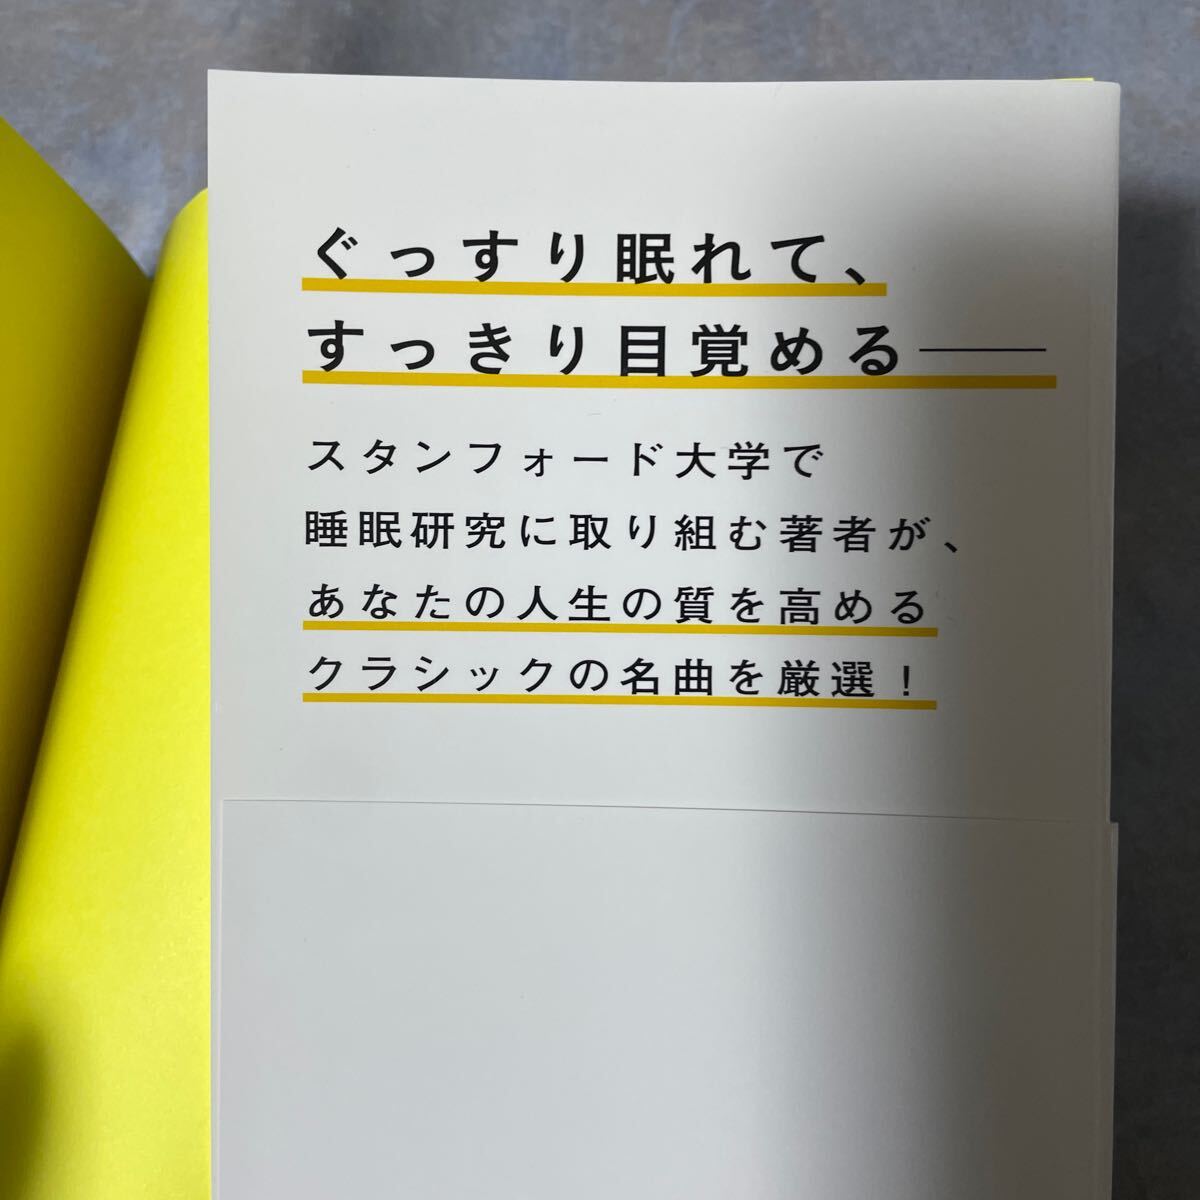 ぐっすり眠れて、
すっきり目覚める――
スタンフォード大学で
睡眠研究に取り組む著者が、
あなたの人生の質を高める
クラシックの名曲を厳選！